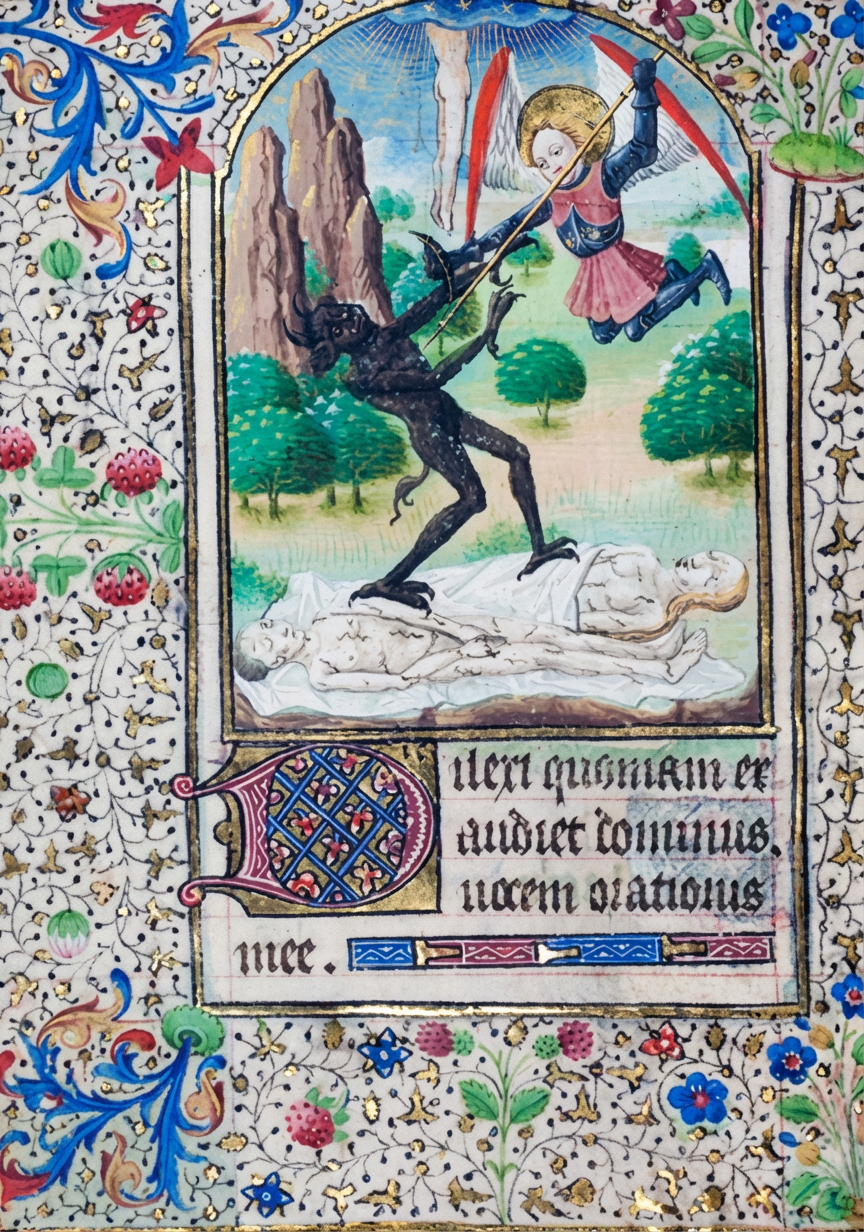 Dilexi quoniam ex
audiet dominus.
uocem orationis
mee.